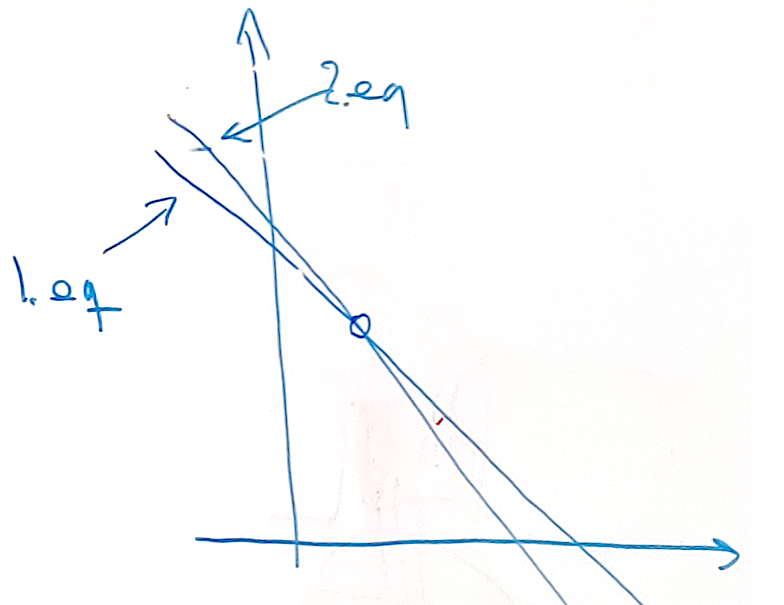 2.eq
1.eq